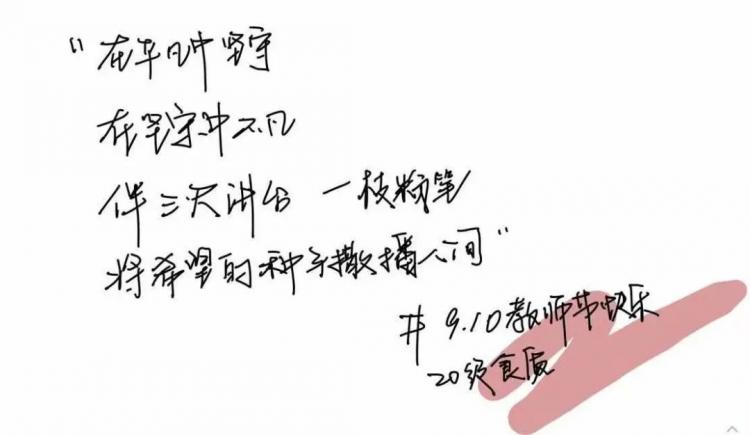 “在平凡中坚守
在坚守中不凡
伴三尺讲台 一枝粉笔
将希望的种子撒播人间”
# 9.10教师节快乐
20级食质